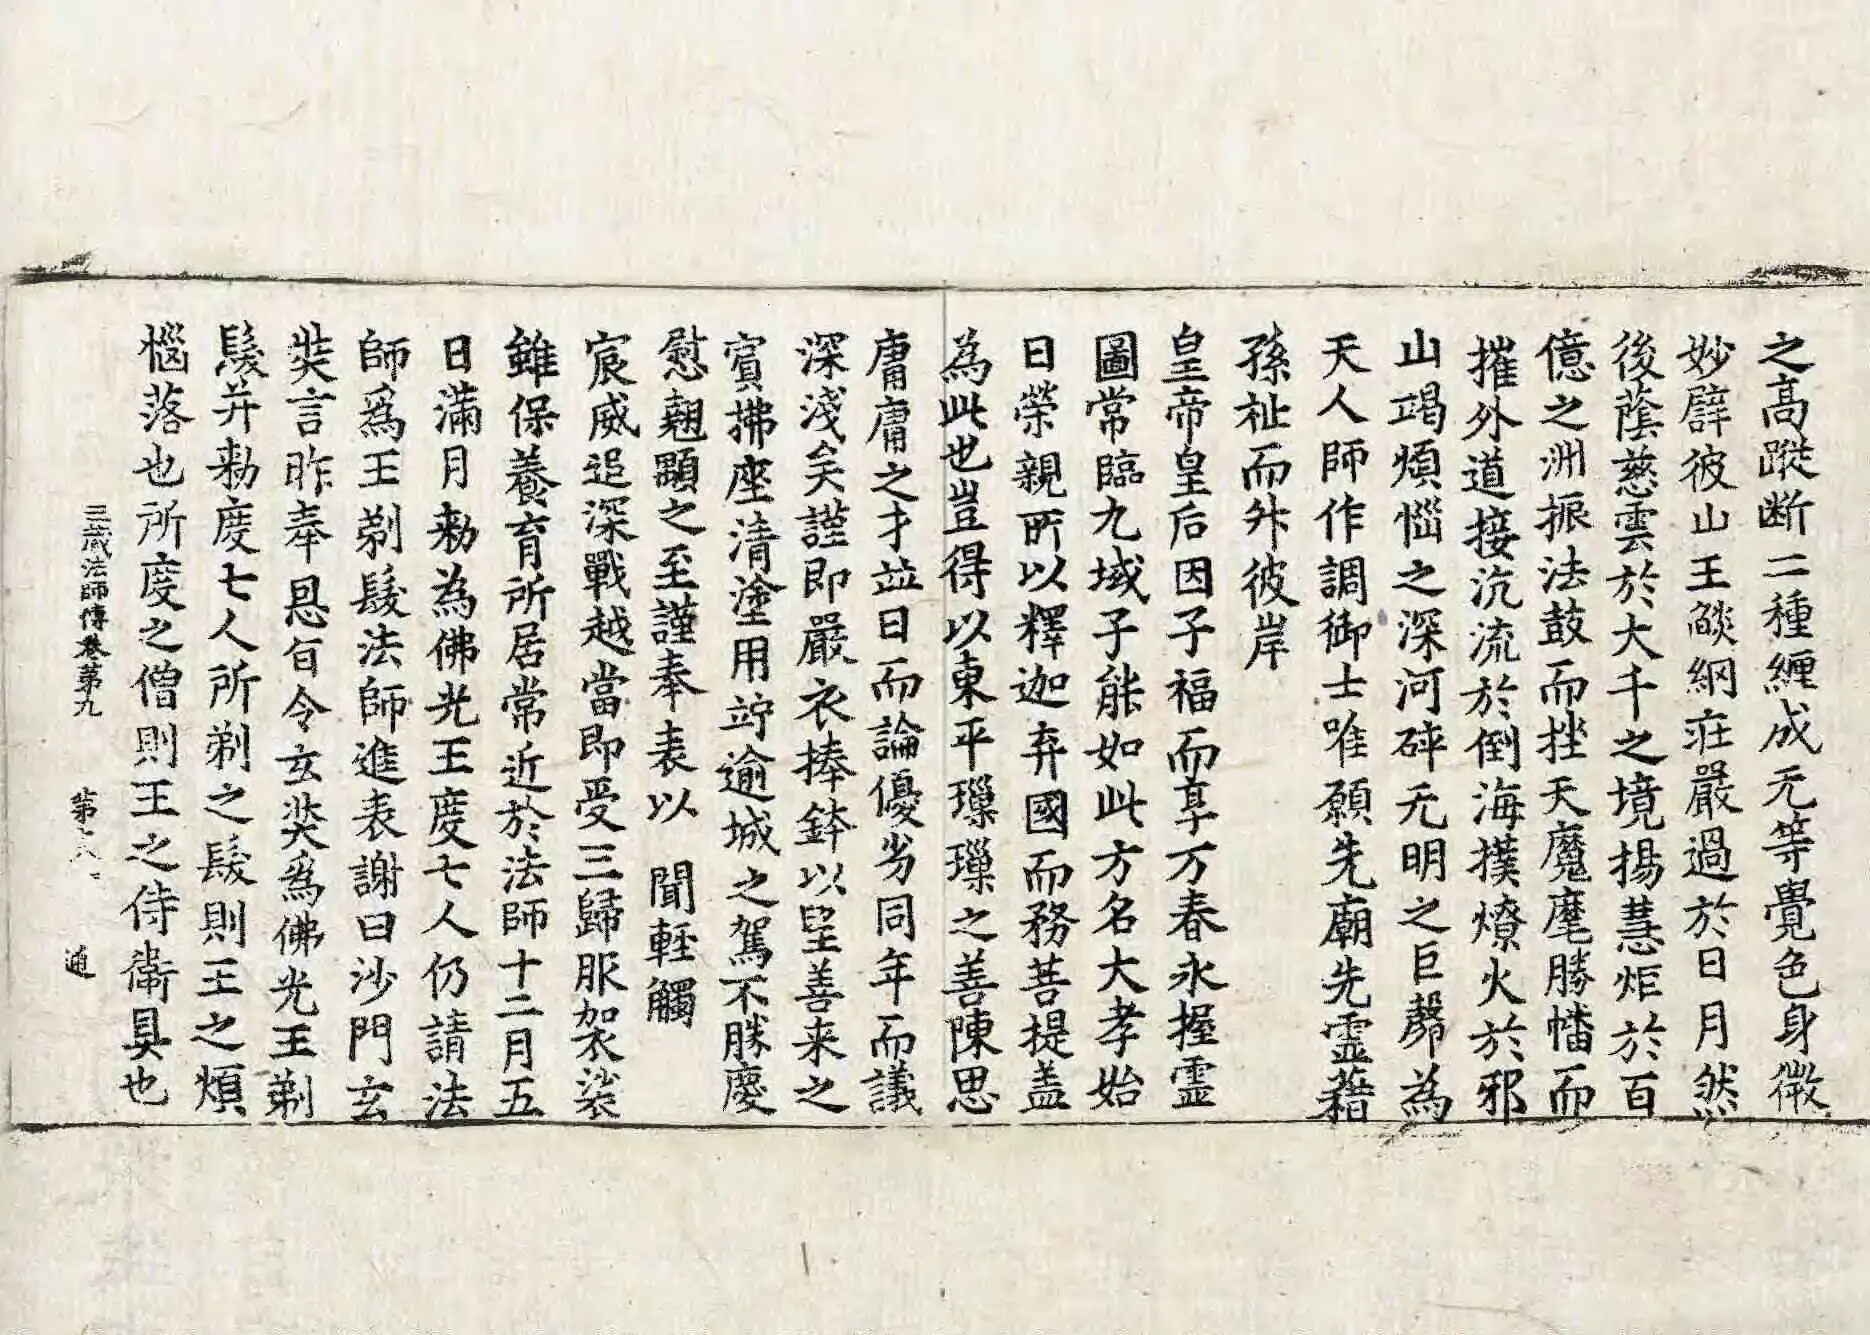 之高蹤断二種纏成无等覺色身微
妙譬彼山王㷿網莊嚴過於日月然
後蔭慈雲於大千之境揚慧炬於百
億之洲振法鼓而挫天魔麾勝幡而
摧外道接沉流於倒海撲燎火於邪
山竭煩惱之深河碎无明之巨㲉為
天人師作調御士唯願先廟先靈藉
孫祉而升彼岸
皇帝皇后因子福而享万春永握靈
圖常臨九域子能如此方名大孝始
曰榮親所以釋迦弃國而務菩提盖
為此也豈得以東平璅璅之善陳思
庸庸之才並日而論優劣同年而議
深淺矣謹即嚴衣捧鉢以望善来之
賓拂座清塗用竚逾城之駕不勝慶
慰翹顒之至謹奉表以 聞輕觸
宸威追深戰越當即受三歸服袈裟
雖保養育所居常近於法師十二月五
日滿月勑為佛光王度七人仍請法
師爲王剃髮法師進表謝曰沙門玄
奘言昨奉恩旨令玄奘爲佛光王剃
髮并勑度七人所剃之髮則王之煩
惱落也所度之僧則王之侍衛具也
三藏法師傳卷第九 第 通